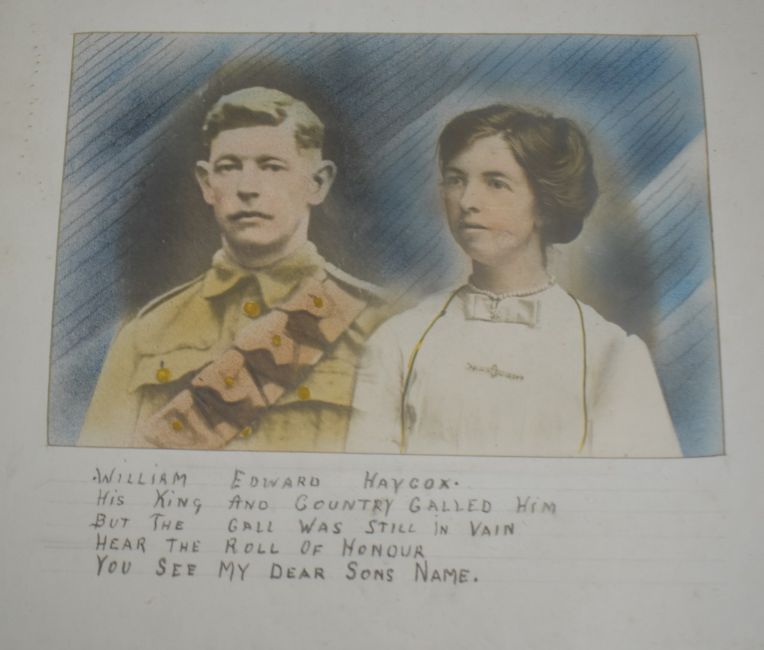 .WILLIAM EDWARD HAYCOX.
HIS KING AND COUNTRY CALLED HIM
BUT THE CALL WAS STILL IN VAIN
HEAR THE ROLL OF HONOUR
YOU SEE MY DEAR SONS NAME.